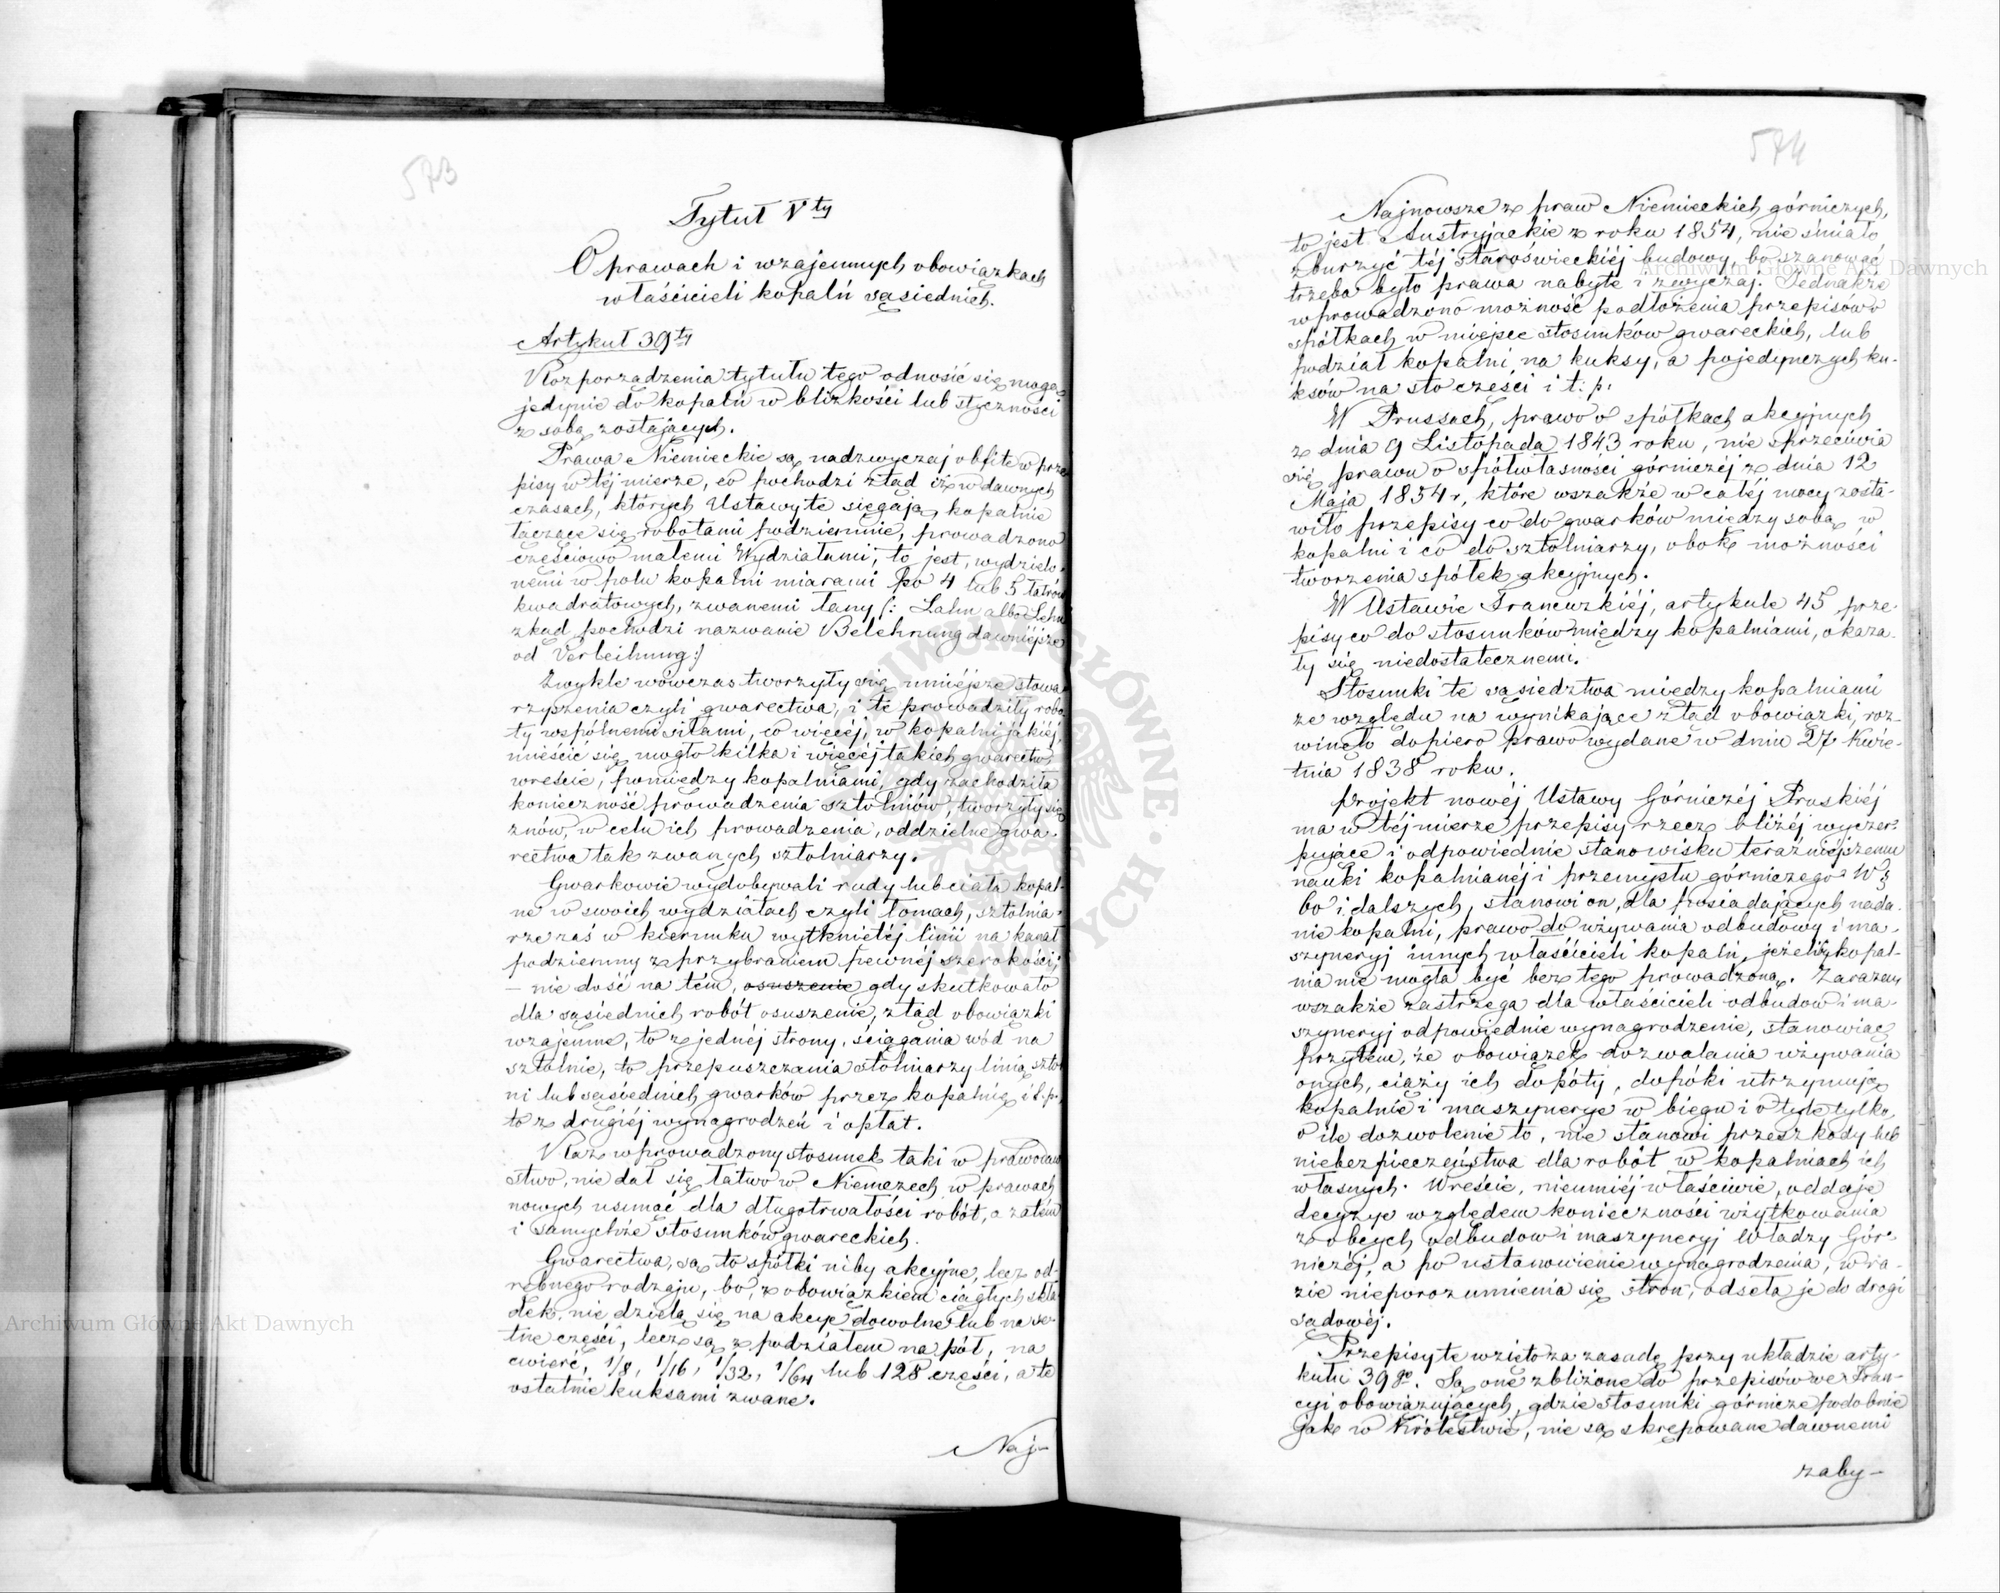 573
Tytuł Vty
O prawach i wzajemnych obowiązkach
właścicieli kopalń sąsiednich.
Artykuł 39ty
Rozporządzenia tytułu tego odnosić się mogą
jedynie do kopalń w blizkości lub styczności
z sobą zostających.
Prawa Niemieckie są nadzwyczaj obfite w prze
pisy w tej mierze, co pochodzi ztąd iż w dawnych
czasach, których Ustawy te sięgają, kopalnie
łączące się robotami podziemnie, prowadzono
częściowo małemi Wydziałami, to jest, wydzielo-
nemi w polu kopalni miarami po 4 lub 5 łatrów
kwadratowych, zwanemi łany (: Lahn albo Lehn
zkąd pochodzi nazwanie Belehnung dawniejsze
od Verleihung:)
Zwykle wówczas tworzyły się mniejsze stowa-
rzyszenia czyli gwarectwa, i te prowadziły robo-
ty wspólnemi siłami, co więcej, w kopalni jakiej,
mieścić się mogło kilka i więcej takich gwarectw,
wreście, pomiędzy kopalniami, gdy zachodziła
konieczność prowadzenia sztolniów, tworzyły się
znów, w celu ich prowadzenia, oddzielne gwa-
rectwa tak zwanych sztolniarzy.
Gwarkowie wydobywali rudy lub ciała kopal-
ne w swoich wydziałach czyli łomach, sztolnia-
rze zaś w kierunku wytkniętej linii na kanał
podziemny z przybraniem pewnej szerokości,
– nie dość na tém, osuszenie gdy skutkowało
dla sąsiednich robót osuszenie, ztąd obowiązki
wzajemne, to z jednéj strony, ściągania wód na
sztolnie, to przepuszczania stolniarzy linią sztol
ni lub sąsiednich gwarków przez kopalnię i t.p.,
to z drugiéj wynagrodzeń i opłat.
Raz wprowadzony stosunek taki w prawodaw
stwo, nie dał się łatwo w Niemczech w prawach
nowych usunąć dla długotrwałości robót, a zatém
i samychże stosunków gwareckich.
Gwarectwa, są to spółki niby akcyjne, lecz od-
rębnego rodzaju, bo, z obowiązkiem ciągłych skła
dek, nie dzielą się na akcye dowolne lub na se-
tne części, lecz są z podziałem na pół, na
cwierć, 1/8, 1/16, 1/32, 1/64 lub 128 części, a te
ostatnie kuksami zwane.
Naj-
574
Najnowsze z praw Niemieckich górniczych,
to jest Austryjackie z roku 1854, nie śmiało
zburzyć téj staroświeckiéj budowy, bo szanować
trzeba było prawa nabyte i zwyczaj. Jednakże
wprowadzono możność podłożenia przepisów o
spółkach w miejsce stosunków gwareckich, lub
podział kopalni na kuksy, a pojedynczych ku-
ksów na sto części i t. p.
W Prussach, prawo o spółkach akcyjnych
z dnia 9 Listopada 1843 roku, nie sprzeciwia
się prawu o spółwłasności górniczéj z dnia 12
Maja 1854 r, które wszakże w całéj mocy zosta-
wiło przepisy co do gwarków między sobą w
kopalni i co do sztolniarzy, obok możności
tworzenia spółek akcyjnych.
W Ustawie Francuzkiéj, artykule 45 prze-
pisy co do stosunków między kopalniami, okaza-
ły się niedostatecznemi.
Stosunki te sąsiedztwa między kopalniami
ze względu na wynikające ztąd obowiązki, roz-
winęło dopiero prawo wydane w dniu 27 Kwie-
tnia 1838 roku.
Projekt nowéj Ustawy Górniczéj Pruskiéj
ma w téj mierze przepisy rzecz bliżéj wyczer-
pujące i odpowiednie stanowisku teraźniejszemu
nauki kopalnianéj i przemysłu górniczego. W §
60 i dalszych, stanowi on, dla posiadających nada-
nie kopalni, prawo do używania odbudowy i ma-
szyneryj innych właścicieli kopalń, jeżeliby kopal-
nia nie mogła być bez tego prowadzoną. Zarazem
wszakże zastrzega dla właścicieli odbudow i ma-
szyneryj odpowiednie wynagrodzenie, stanowiąc
przytém, że obowiązek dozwalania używania
onych, ciąży ich dopóty, dopóki utrzymują
kopalnie i maszynerye w biegu i o tyle tylko,
o ile dozwolenie to, nie stanowi przeszkody lub
niebezpieczeństwa dla robót w kopalniach ich
własnych. Wreście, nieumiéj właściwie, oddaje
decyzye względem konieczności użytkowania
z obcych odbudow i maszyneryj Władzy Gór-
niczéj, a po ustanowienie wynagrodzenia, w ra-
zie nieporozumienia się stron, odseła je do drogi
sądowéj.
Przepisy te wzięto za zasadę przy układzie arty-
kułu 39go. Są one zbliżone do przepisów we Fran-
cyi obowiązujących, gdzie stosunki górnicze podobnie
jak w Królestwie, nie są skrępowane dawnemi
zaby-
Archiwum Główne Akt Dawnych
Archiwum Główne Akt Dawnych